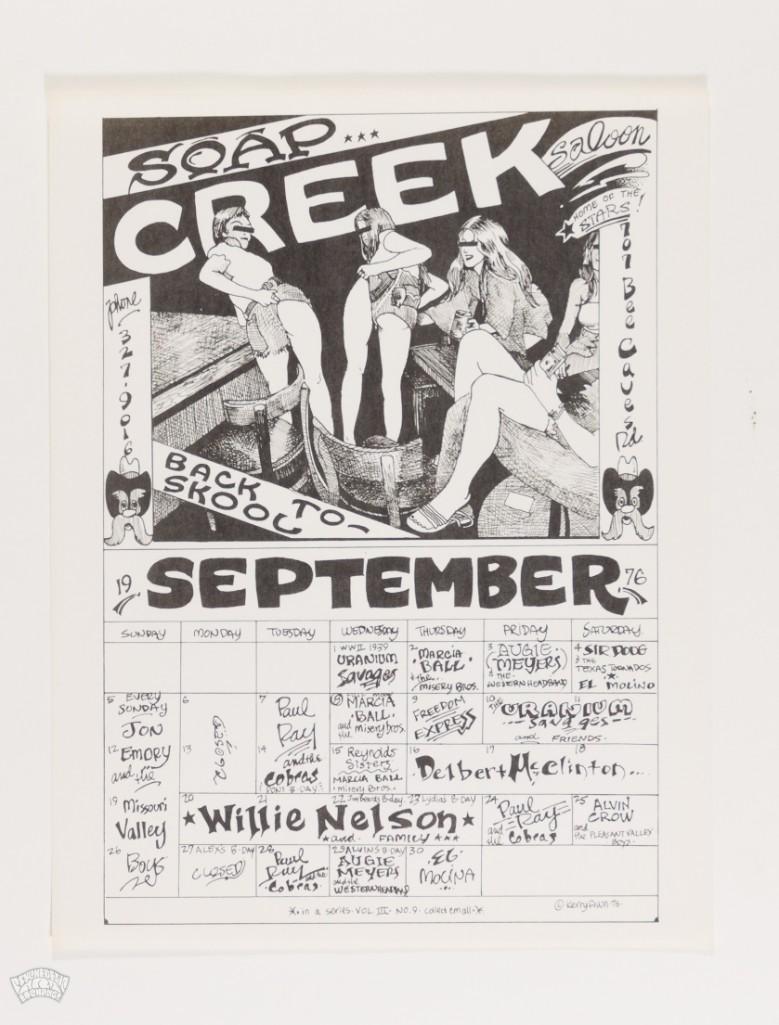 SOAP...
CREEK
Saloon
HOME OF THE
STARS!
phone
327-9016
707 Bee Caves Rd
BACK TO-
SKOOL
19 SEPTEMBER 76
SUNDAY MONDAY TUESDAY WEDNESDAY THURSDAY FRIDAY SATURDAY
1 WWII 1939
URANIUM
Savages
2 MARCIA
BALL
& the
MISERY BROS.
3 AUGIE
MEYERS
& THE
WESTERN HEADBAND
4 SIR DOUG
& THE
TEXAS TORNADOS
EL MOLINO
5 EVERY
SUNDAY
JON
6
7
Paul
Ray
8 MARCIA
BALL
and the miserybros.
9
FREEDOM
EXPRESS
10 THE URANIUM 11
Savages
and FRIENDS.
12 EMORY
and the
13
CLOSED
14
and the
Cobras
15 Reynolds
Sisters
MARCIA BALL
misery Bros.
16 17 18
Delbert McClinton...
19 Missouri
Valley
20 21 22 Jim Beards B-day. 23 Lydia's B-DAY
Willie Nelson
and FAMILY
24
Paul
Ray
and the Cobras
25 ALVIN
CROW
and the PLEASANT VALLEY
BOYZ
26
Boys
27 ALEX'S B-DAY
CLOSED
28
Paul
Ray and the
Cobras
29 ALVINS B-DAY
AUGIE
MEYERS
and the
WESTERN HEADBAND
30
EL
MOLINA
in a series. VOL III. NO. 9. collect em all.
© Kerry Awn 76